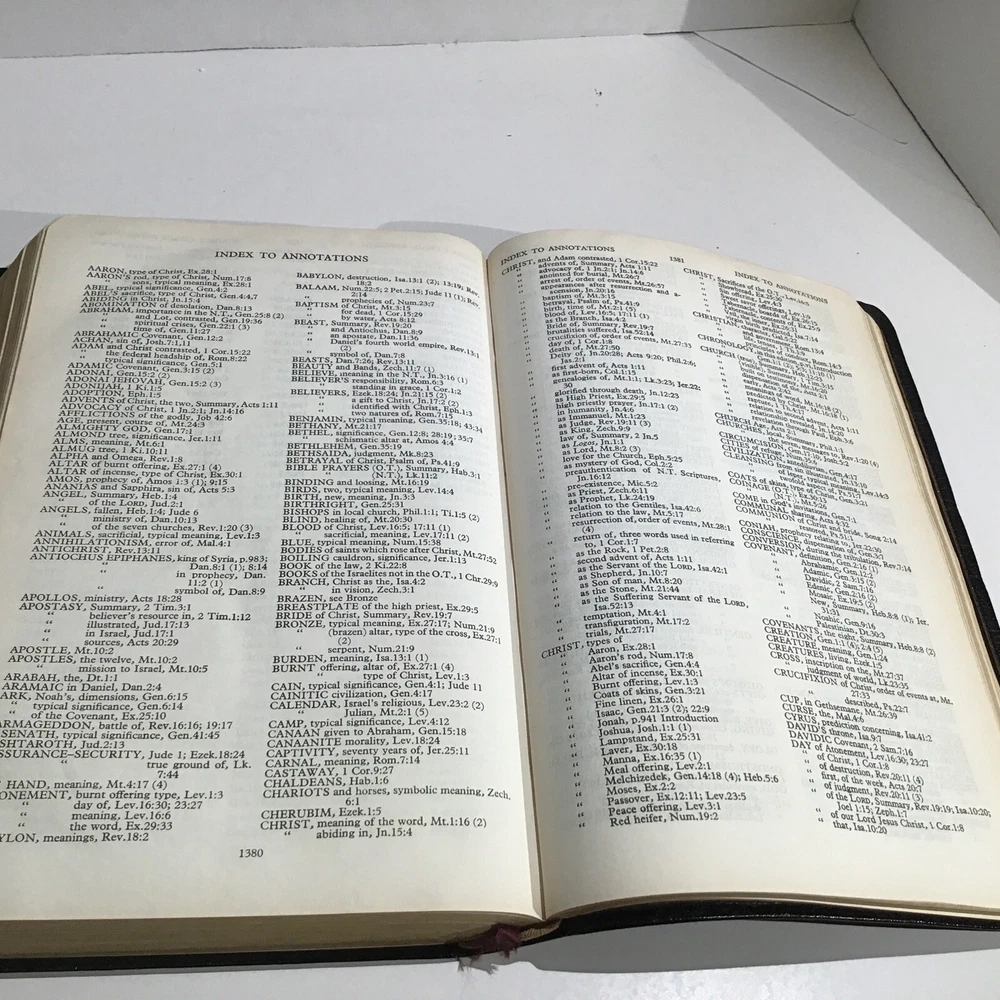 INDEX TO ANNOTATIONS
AARON, type of Christ, Ex.28:1
AARON'S rod, type of Christ, Num.17:8
“ sons, typical meaning, Ex.29:1
ABEL, typical significance, Gen.4:2
ABEL'S sacrifice, type of Christ, Gen.4:4,7
ABIDING in Christ, Jn.15:4
ABOMINATION of desolation, Dan.8:13
ABRAHAM, importance in the N.T., Gen.25:8 (2)
“ and Lot, contrasted, Gen.19:36
“ spiritual crises, Gen.22:1 (3)
“ time of, Gen.11:27
ABRAHAMIC Covenant, Gen.12:2
ACHAN, sin of, Josh.7:1,11
ADAM and Christ contrasted, 1 Cor.15:22
“ the federal headship of, Rom.8:22
“ typical significance, Gen.5:1
ADAMIC Covenant, Gen.3:15 (2)
ADONAI, Gen.15:2 (2)
ADONAI JEHOVAH, Gen.15:2 (3)
ADONIJAH, 1 Ki.1:5
ADOPTION, Eph.1:5
ADVENTS of Christ, the two, Summary, Acts 1:11
ADVOCACY of Christ, 1 Jn.2:1; Jn.14:16
AFFLICTIONS of the godly, Job 42:6
AGE, present, course of, Mt.24:3
ALMIGHTY GOD, Gen.17:1
ALMOND tree, significance, Jer.1:11
ALMS, meaning, Mt.6:1
ALMUG tree, 1 Ki.10:11
ALPHA and Omega, Rev.1:8
ALTAR of burnt offering, Ex.27:1 (4)
ALTAR of incense, type of Christ, Ex.30:1
AMOS, prophecy of, Amos 1:3 (1); 9:15
ANANIAS and Sapphira, sin of, Acts 5:3
ANGEL, Summary, Heb.1:4
“ of the LORD, Jud.2:1
ANGELS, fallen, Heb.1:4; Jude 6
“ ministry of, Dan.10:13
“ of the seven churches, Rev.1:20 (3)
ANIMALS, sacrificial, typical meaning, Lev.1:3
ANNIHILATIONISM, error of, Mal.4:1
ANTICHRIST, Rev.13:11
ANTIOCHUS EPIPHANES, king of Syria, p.983;
Dan.8:1 (1); 8:14
“ in prophecy, Dan.
11:2 (1)
“ symbol of, Dan.8:9
APOLLOS, ministry, Acts 18:28
APOSTASY, Summary, 2 Tim.3:1
“ believer's resource in, 2 Tim.1:12
“ illustrated, Jud.17:13
“ in Israel, Jud.17:1
“ sources, Acts 20:29
APOSTLE, Mt.10:2
APOSTLES, the twelve, Mt.10:2
“ mission to Israel, Mt.10:5
ARABAH, the, Dt.1:1
ARAMAIC in Daniel, Dan.2:4
ARK, Noah's, dimensions, Gen.6:15
“ typical significance, Gen.6:14
“ of the Covenant, Ex.25:10
ARMAGEDDON, battle of, Rev.16:16; 19:17
SENATH, typical significance, Gen.41:45
SHTAROTH, Jud.2:13
SSURANCE–SECURITY, Jude 1; Ezek.18:24
“ true ground of, Lk.
7:44
HAND, meaning, Mt.4:17 (4)
ONEMENT, burnt offering type, Lev.1:3
“ day of, Lev.16:30; 23:27
“ meaning, Lev.16:6
“ the word, Ex.29:33
YLON, meanings, Rev.18:2
BABYLON, destruction, Isa.13:1 (2); 13:19; Rev.
18:2
BALAAM, Num.22:5; 2 Pet.2:15; Jude 11 (1); Rev.
2:14
“ prophecies of, Num.23:7
BAPTISM of Christ, Mt.3:15
“ for dead, 1 Cor.15:29
“ by water, Acts 8:12
BEAST, Summary, Rev.19:20
“ and Antiochus, Dan.8:9
“ an atheist, Dan.11:36
“ Daniel's fourth world empire, Rev.13:1
(2)
“ symbol of, Dan.7:8
BEASTS, Dan.7:26; Rev.13:11
BEAUTY and Bands, Zech.11:7 (1)
BELIEVE, meaning in the N.T., Jn.3:16 (1)
BELIEVER'S responsibility, Rom.6:3
“ standing in grace, 1 Cor.1:2
BELIEVERS, Ezek.18:24; Jn.21:15 (2)
“ a gift to Christ, Jn.17:2 (2)
“ identified with Christ, Eph.1:3
“ two natures of, Rom.7:15
BENJAMIN, typical meaning, Gen.35:18; 43:34
BETHANY, Mt.21:17
BETHEL, significance, Gen.12:8; 28:19; 35:7
“ schismatic altar at, Amos 4:4
BETHLEHEM, Gen.35:19
BETHSAIDA, judgment, Mk.8:23
BETRAYAL of Christ, Psalm of, Ps.41:9
BIBLE PRAYERS (O.T.), Summary, Hab.3:1
“ (N.T.), Lk.11:2
BINDING and loosing, Mt.16:19
BIRDS, two, typical meaning, Lev.14:4
BIRTH, new, meaning, Jn.3:3
BIRTHRIGHT, Gen.25:31
BISHOPS in local church, Phil.1:1; Ti.1:5 (2)
BLIND, healing of, Mt.20:30
BLOOD of Christ, Lev.16:5; 17:11 (1)
“ sacrificial, meaning, Lev.17:11 (2)
BLUE, typical meaning, Num.15:38
BODIES of saints which rose after Christ, Mt.27:52
BOILING cauldron, significance, Jer.1:13
BOOK of the law, 2 Ki.22:8
BOOKS of the Israelites not in the O.T., 1 Chr.29:9
BRANCH, Christ as the, Isa.4:2
“ in vision, Zech.3:1
BRAZEN, see Bronze
BREASTPLATE of the high priest, Ex.29:5
BRIDE of Christ, Summary, Rev.19:7
BRONZE, typical meaning, Ex.27:17; Num.21:9
“ (brazen) altar, type of the cross, Ex.27:1
(2)
“ serpent, Num.21:9
BURDEN, meaning, Isa.13:1 (1)
BURNT offering, altar of, Ex.27:1 (4)
“ type of Christ, Lev.1:3
CAIN, typical significance, Gen.4:1; Jude 11
CAINITIC civilization, Gen.4:17
CALENDAR, Israel's religious, Lev.23:2 (2)
“ Julian, Mt.2:1 (5)
CAMP, typical significance, Lev.4:12
CANAAN given to Abraham, Gen.15:18
CANAANITE morality, Lev.18:24
CAPTIVITY, seventy years of, Jer.25:11
CARNAL, meaning, Rom.7:14
CASTAWAY, 1 Cor.9:27
CHALDEANS, Hab.1:6
CHARIOTS and horses, symbolic meaning, Zech.
6:1
CHERUBIM, Ezek.1:5
CHRIST, meaning of the word, Mt.1:16 (2)
“ abiding in, Jn.15:4
1380
INDEX TO ANNOTATIONS
1381
CHRIST, and Adam contrasted, 1 Cor.15:22
“ advents of, Summary, Acts 1:11
“ advocacy of, 1 Jn.2:1; Jn.14:6
“ anointed for burial, Mt.26:7
“ arrest of, order of events, Mt.26:57
“ appearances after resurrection and a-
scension, Jn.20:16
“ baptism of, Mt.3:15
“ betrayal, Psalm of, Ps.41:9
“ birth, time of, Mt.2:1 (5)
“ blood of, Lev.16:5; 17:11 (1)
“ as the Branch, Isa.4:2
“ Bride of, Summary, Rev.19:7
“ brutalities suffered, Isa.52:14
“ crucifixion of, order of events, Mt.27:33
“ day of, 1 Cor.1:8
“ death of, Mt.27:50
“ Deity of, Jn.20:28; Acts 9:20; Phil.2:6;
Jas.2:1
“ first advent of, Acts 1:11
“ as first-born, Col.1:15
“ genealogies of, Mt.1:1; Lk.3:23; Jer.22:
30
“ glorified through death, Jn.12:23
“ as High Priest, Ex.29:5
“ high priestly prayer, Jn.17:1 (2)
“ in humanity, Jn.4:6
“ as Immanuel, Mt.1:23
“ as Judge, Rev.19:11 (3)
“ as King, Zech.9:9
“ law of, Summary, 2 Jn.5
“ as Logos, Jn.1:1
“ as Lord, Mt.8:2 (3)
“ love for the Church, Eph.5:25
“ as mystery of God, Col.2:2
“ preauthentication of N.T. Scriptures,
Jn.16:12
“ pre-existence, Mic.5:2
“ as Priest, Zech.6:11
“ as Prophet, Lk.24:19
“ relation to the Gentiles, Isa.42:6
“ relation to the law, Mt.5:17
“ resurrection of, order of events, Mt.28:1
(4)
“ return of, three words used in referring
to, 1 Cor.1:7
“ as the Rock, 1 Pet.2:8
“ second advent of, Acts 1:11
“ as the Servant of the LORD, Isa.42:1
“ as Shepherd, Jn.10:7
“ as Son of man, Mt.8:20
“ as the Stone, Mt.21:44
“ as the Suffering Servant of the LORD,
Isa.52:13
“ temptation, Mt.4:1
“ transfiguration, Mt.17:2
“ trials, Mt.27:17
CHRIST, types of
“ Aaron, Ex.28:1
“ Aaron's rod, Num.17:8
“ Abel's sacrifice, Gen.4:4
“ Altar of incense, Ex.30:1
“ Burnt offering, Lev.1:3
“ Coats of skins, Gen.3:21
“ Fine linen, Ex.26:1
“ Isaac, Gen.21:3 (2); 22:9
“ Jonah, p.941 Introduction
“ Joshua, Josh.1:1 (1)
“ Lampstand, Ex.25:31
“ Laver, Ex.30:18
“ Manna, Ex.16:35 (1)
“ Meal offering, Lev.2:1
“ Melchizedek, Gen.14:18 (4); Heb.5:6
“ Moses, Ex.2:2
“ Passover, Ex.12:11; Lev.23:5
“ Peace offering, Lev.3:1
“ Red heifer, Num.19:2
INDEX TO ANNOTATIONS
CHRIST, Sacrifices of the
CHRISTIAN
CHRONOLOGY
CHURCH
CHURCH Age
CHURCHES, local, Summary, Phil.1:1
CIRCUMCISION
CITIES of refuge
CIVILIZATION
CLEANSING from
COATS of skins
COMB in Christ's
COMMUNAL
COMMUNION
CONIAH, prophecy
CONSCIENCE
CONVERSATION
COVENANT, definition, Gen.2:16 (1)
“ Abrahamic, Gen.12:2
“ Adamic, Gen.3:15 (2)
“ Davidic, 2 Sam.7:16
“ Edenic, Gen.2:16 (2)
“ Mosaic, Ex.19:5 (2)
“ New, Summary, Heb.8:8 (1); Jer.
31:31
“ Noahic, Gen.9:16
“ Palestinian, Dt.30:3
COVENANTS, the eight, Summary, Heb.8:8 (2)
CREATION, Gen.1:1 (4); 2:4 (5)
CREATURE, meaning, Gen.1:24
CREATURES, living, Ezek.1:5
CROSS, inscription on the, Mt.27:37
“ judgment of world, Lk.23:35
CRUCIFIXION of Christ, order of events at, Mt.
27:33
“ described, Ps.22:7
CUP, in Gethsemane, Mt.26:39
CURSE, the, Mal.4:6
CYRUS, prediction concerning, Isa.41:2
DAVID'S throne, Isa.9:7
DAVIDIC Covenant, 2 Sam.7:16
DAY of Atonement, Lev.16:30; 23:27
“ of Christ, 1 Cor.1:8
“ of destruction, Rev.20:11 (4)
“ first, of the week, Acts 20:7
“ of judgment, Rev.20:11 (3)
“ of the LORD, Summary, Rev.19:19; Isa.10:20;
Joel 1:15; Zeph.1:7
“ of our Lord Jesus Christ, 1 Cor.1:8
“ that, Isa.10:20